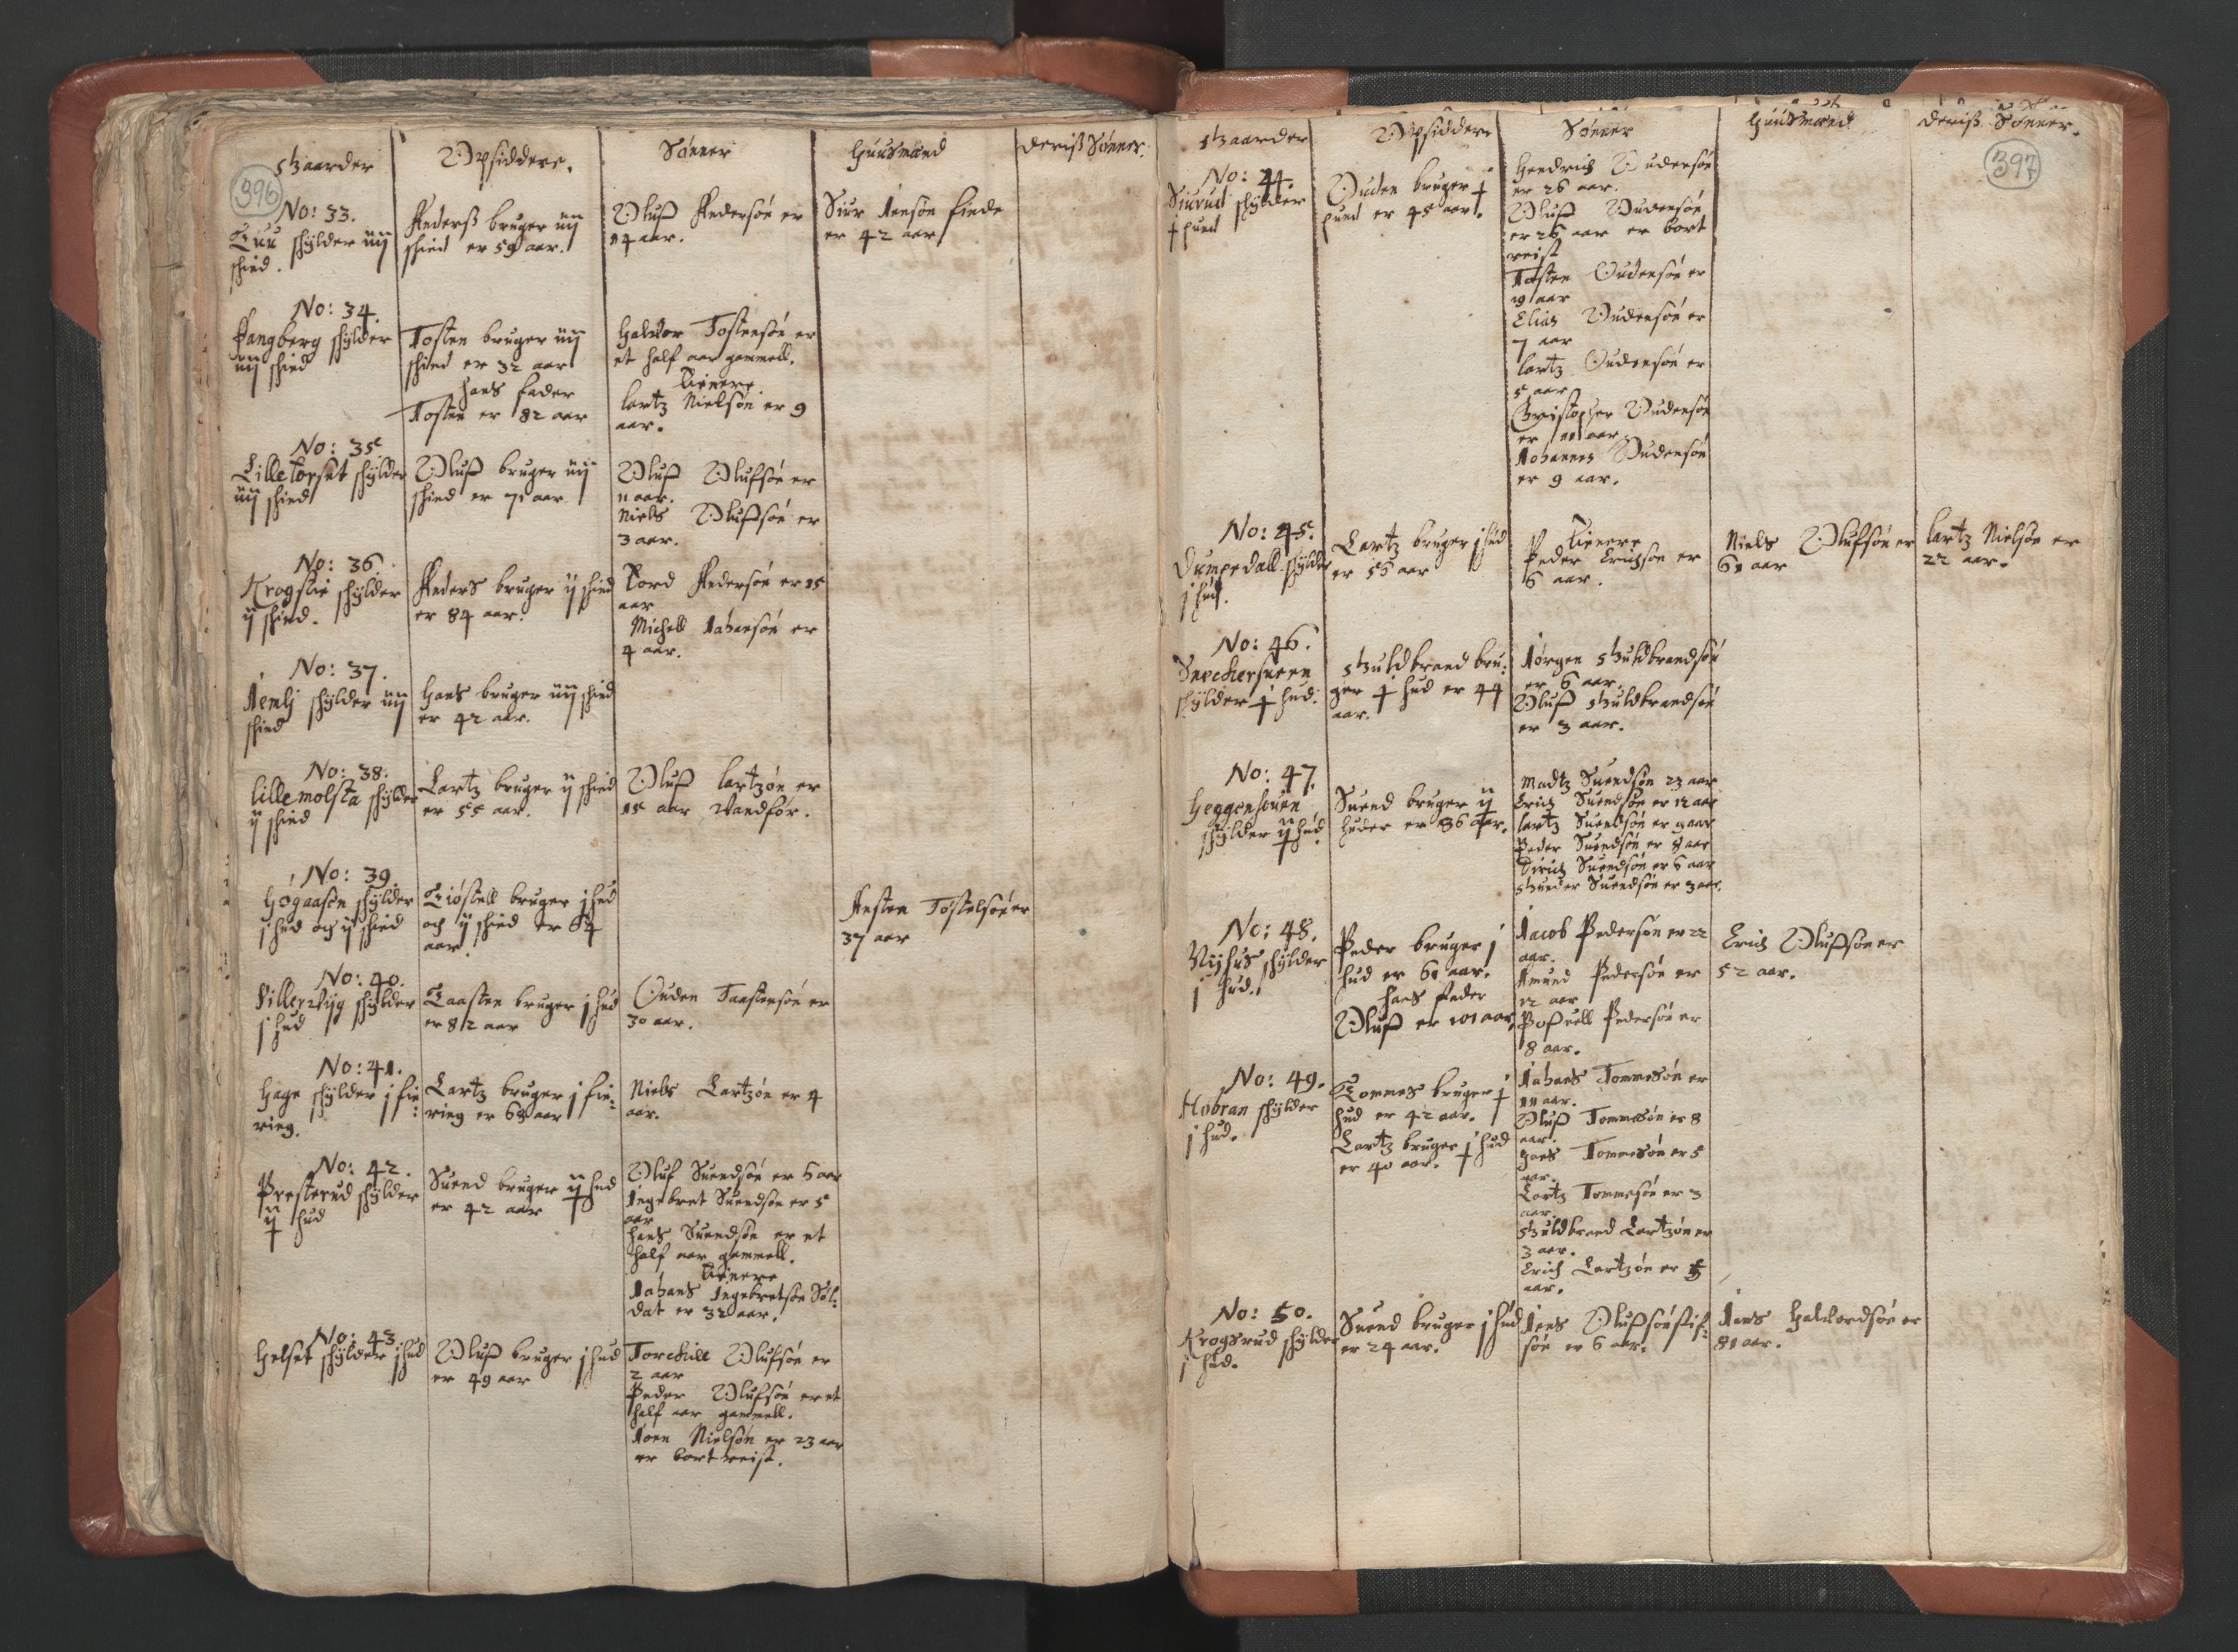 396
Gaarder Opsiddere. Sønner Huusmænd Deris Sønner.
No: 33.
Tuu skylder iiij
skind.
Anderß bruger iiij
skind er 59 aar.
Oluff Andersøn er
14 aar.
Siur Aensøn finde
er 42 aar
No: 34.
Fangberg skylder
iiij skind
Tosten bruger iiij
skind er 32 aar
hans fader
Tosten er 82 aar
Haldor Tostensøn er
et half aar gammell.
Tienere
Lartz Nielsøn er 9
aar.
No: 35.
Lilletorset skylder
iiij skind
Oluff bruger iiij
skind er 71 aar
Oluff Olufsøn er
11 aar.
Niels Oluffsøn er
3 aar.
No: 36.
Krogstie skylder
ij skind.
Anders bruger ij skind
er 84 aar.
Tord Andersøn er 15
aar
Michell Johansøn er
4 aar.
No: 37.
Jemlj skylder iiij
skind
Hans bruger iiij skind
er 42 aar.
No: 38.
Lille molsta skylder
ij skind
Lartz bruger ij skind
er 55 aar.
Oluff Lartzøn er
15 aar Vandfør.
No: 39.
Høgaasen skylder
j hud och ij skind
Tiøstell bruger j hud
och ij skind er 64
aar.
Aesten Tostelsøn er
37 aar
No: 40.
skylder
j hud
Taasten bruger j hud
er 82 aar
Ouden Taastensøn er
30 aar.
No: 41.
Hage skylder j fie:
ring.
Lartz bruger j fie:
ring er 68 aar
Niels Lartzøn er 4
aar.
No: 42.
Presterud skylder
ij hud
Suend bruger ij hud
er 42 aar
Oluf Suendsøn er 6 aar
Ingebret Suendsøn er 5
aar
Hans Suendsøn er et
half aar gammell.
Tienere
Johans Ingebretsøn Sol:
dat er 32 aar.
No: 43.
Helset skylder j hud
Oluff bruger j hud
er 49 aar
Torckill Olufsøn er
2 aar
Peder Olufsøn er et
half aar gammell.
Joen Nielsøn er 23 aar
er bortreist.
397
Gaarder Opsiddere Sønner Huusmænd Deriß Sønner.
No: 44.
Siurud skylder
½ pund
Ouden bruger ½
pund er 45 aar.
Hendrich Oudensøn
er 26 aar.
Oluff Oudensøn
er 26 aar er bort
reist
Tosten Oudensøn er
19 aar
Elias Oudensøn er
7 aar
Lartz Oudensøn er
5 aar
Christopher Oudensøn
er 11 aar
Johannes Oudensøn
er 9 aar.
No: 45.
Dumpedall skylder
j hud.
Lartz bruger j hud
er 56 aar
Tienere
Peder Erichsøn er
6 aar.
Niels Olufsøn er
61 aar
Lartz Nielsøn er
22 aar.
No: 46.
Sneckersueen
skylder ½ hud.
Guldbrand bru:
ger ½ hud er 44
aar.
Jørgen Guldbrandsøn
er 6 aar.
Oluff Guldbrandsøn
er 3 aar.
No: 47.
Heggenhouen
skylder ij hud
Suend bruger ij
huder er 36 aar.
Madtz Suendsøn 23 aar
Erich Suendsøn er 12 aar
Lartz Suendsøn er 9 aar
Peder Suendsøn er 8 aar
Dirich Suendsøn er 6 aar
Gunder Suendsøn er 3 aar.
No: 48.
Nyhus skylder
j hud.
Peder bruger j
hud er 61 aar.
Hans Fader
Oluff er 101 aar
Jacob Pedersøn er 22
aar.
Amund Pedersøn er
12 aar
Poffuell Pedersøn er
8 aar.
Erich Oluffsøn er
52 aar.
No: 49.
Hobran skylder
j hud.
Tommes bruger ½
hud er 42 aar.
Lartz bruger ½ hud
er 40 aar.
Johans Tommesøn er
11 aar.
Oluff Tommesøn er 8
aar.
Hans Tommesøn er 5
aar.
Lartz Tommesøn er 3
aar.
Guldbrand Lartzøn er
3 aar.
Erich Lartzøn er ½
aar.
No: 50.
Krogsrud skylder
j hud.
Suend bruger j hud
er 24 aar.
Jens Oluffsøn stif:
søn er 6 aar.
Jens Haluordsøn er
81 aar.